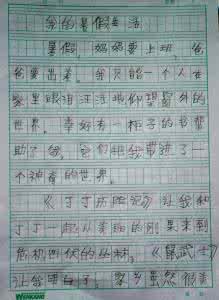 我的暑假生活
暑假,妈妈要上班,爸
爸要出差。我只能一个人在
家里眼泪汪汪地仰望窗外的
世界。幸好有一柜子的书帮
助了我,它们把我带进了一
个神奇的世界。
《丁丁历险记》让我和
丁丁一起从美丽的刚果来到
危机四伏的丛林,《鼠武士》
让我明白了:家乡虽然很美